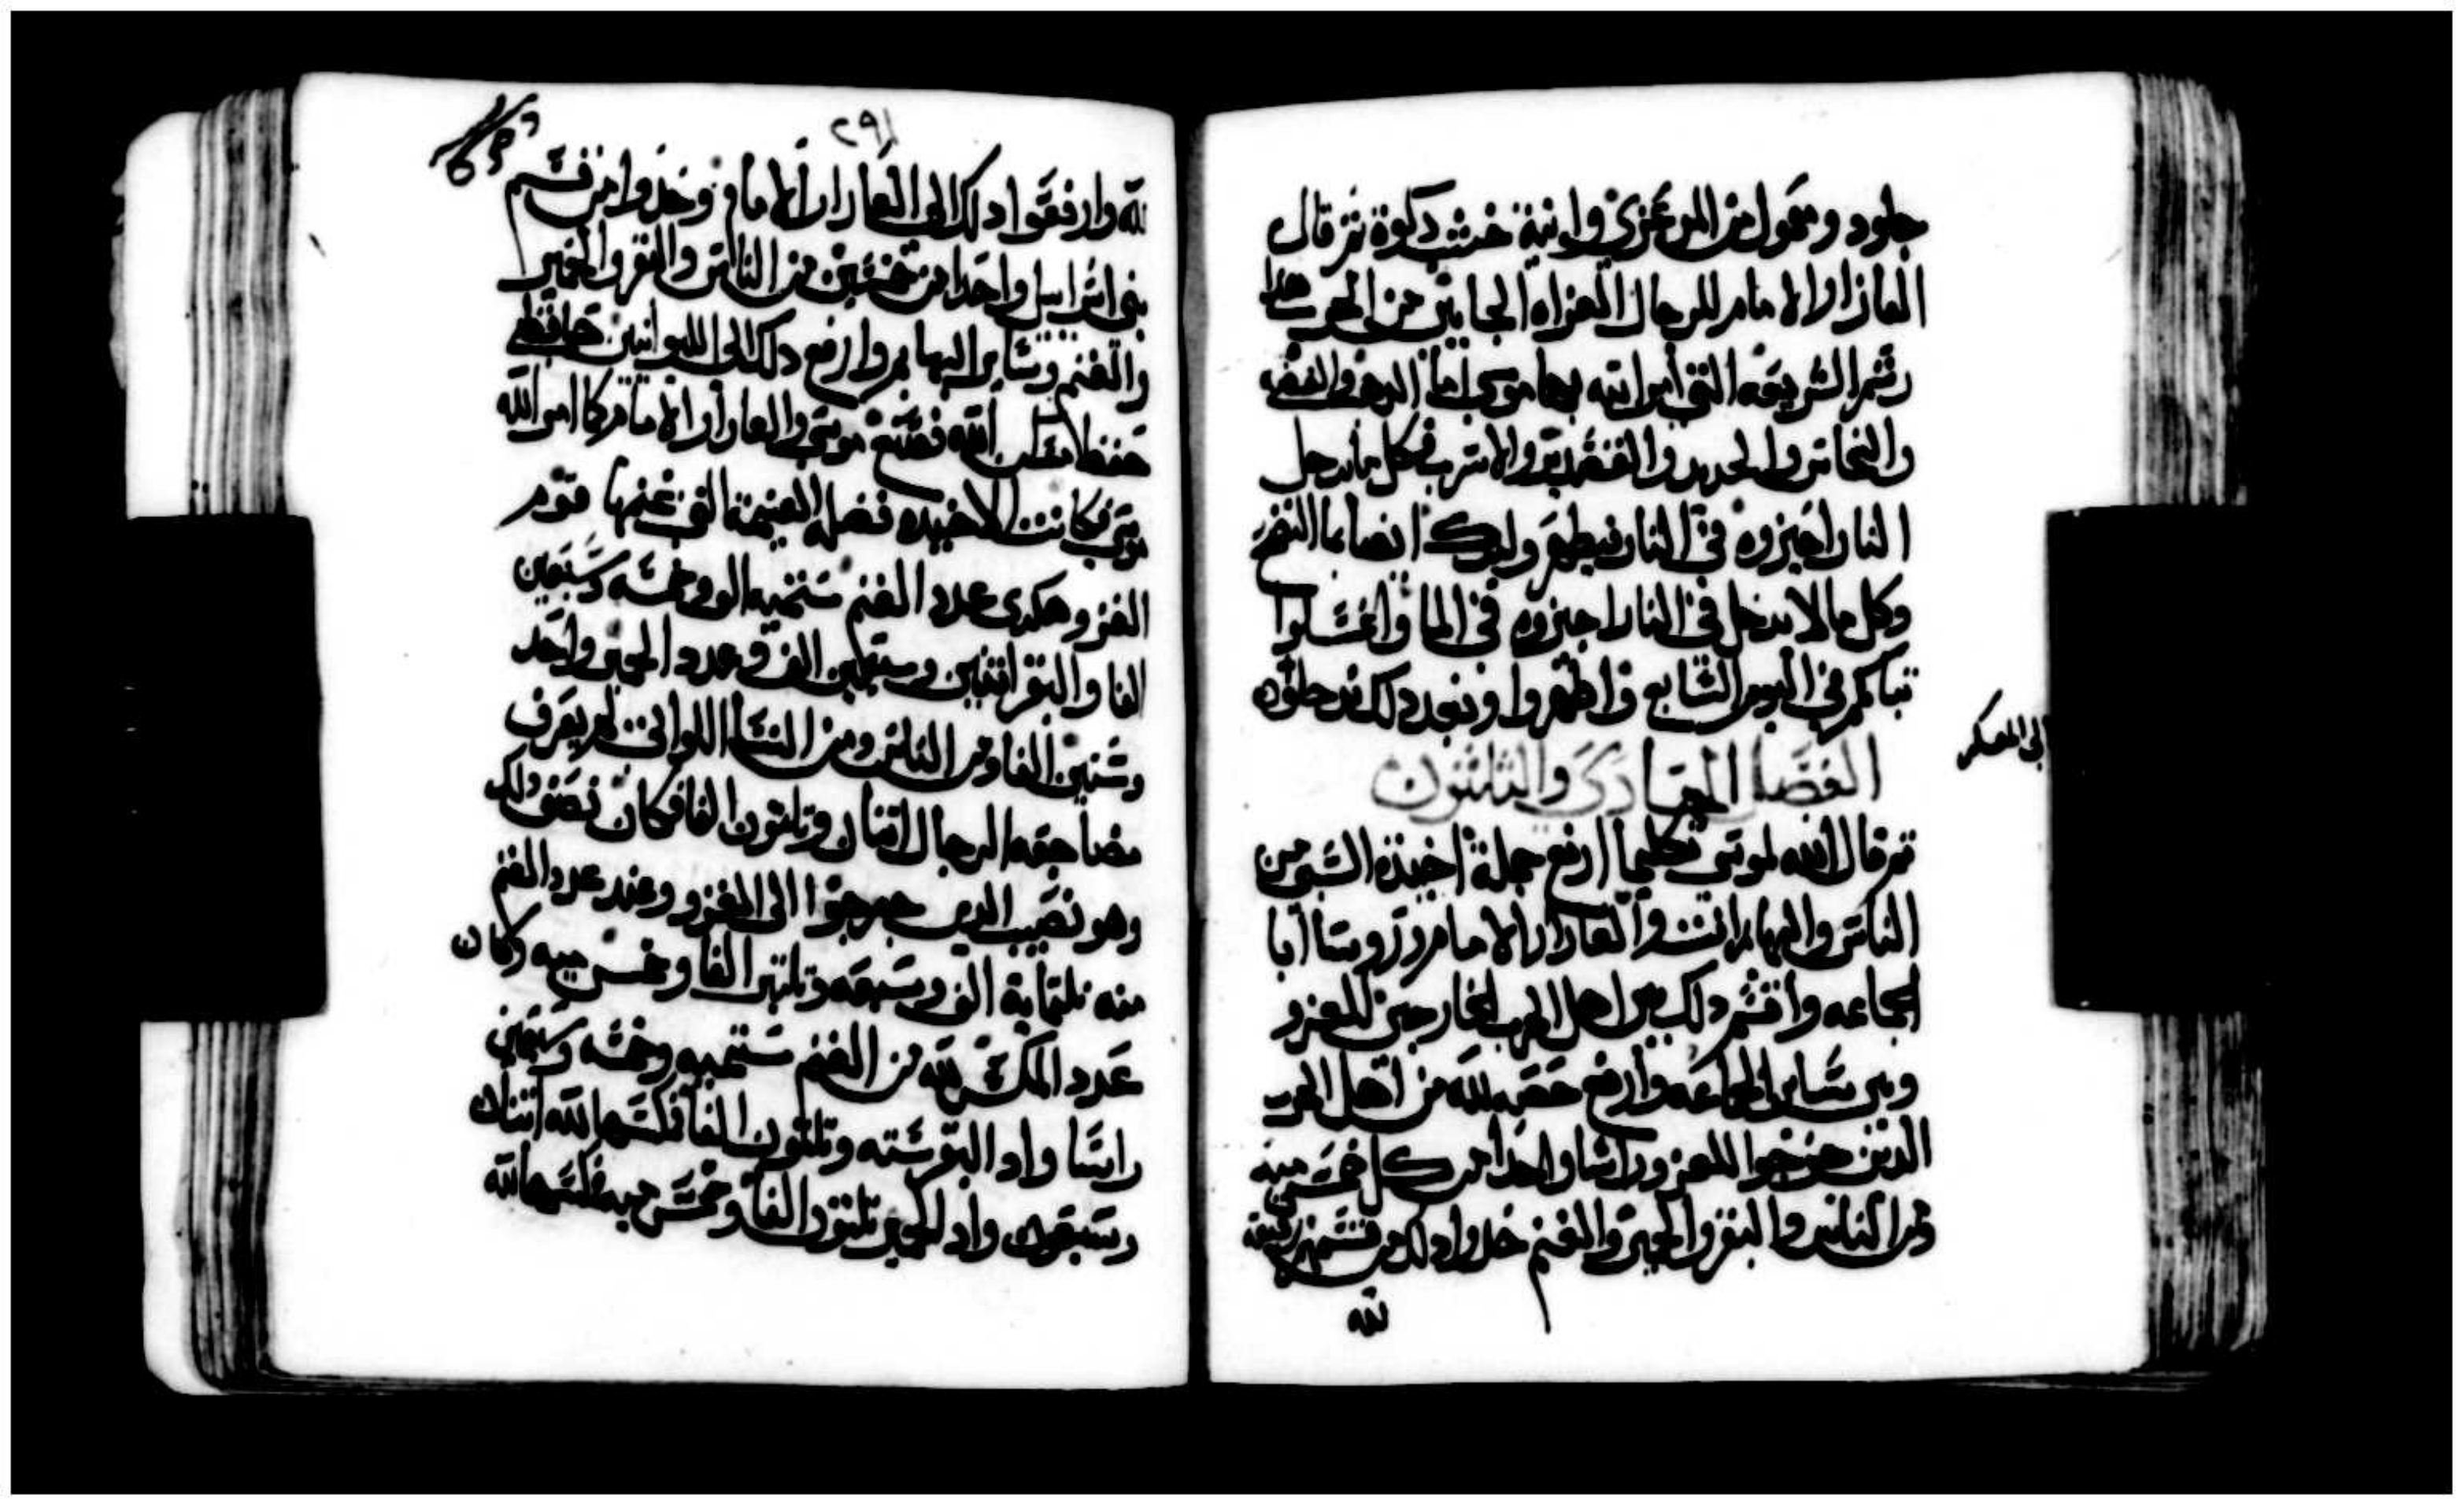 جلود ومعمول من المرعزي وانية خشب دكوة ثم قال
العازار الامام للرجال الغزاه الجايين من الحرب هدا
رسم الشريعه التي امر الله بها موسى اما الدهب والفضه
والنحاس والحديد والقصدير والاسرب فكل ما يدخل
النار اجيزوه في النار فيطهر وليزك ايضا بما النضح
وكل ما لا يدخل في النار اجيزوه في الما واغسلوا
تيابكم في اليوم السابع واطهروا وبعد دلك تدخلون
الى المعسكر
الفصل الحادي والثلثون
ثم قال الله لموسى تكليما ارفع جملة اخيذة السبي من
الناس والبهايم انت والعازار الامام وروسا ابا
الجماعه واقسم دلك بين اهل الحرب الخارجين للغزو
وبين ساير الجماعه وارفع حصه لله من اهل الحرب
الدين خرجوا للغزو راسا واحدا من كل خمس ميه
من الناس والبقر والحمير والغنم خدوا دلك من قسمهم
لله
٢٩١
لله وارفعوا دلك الى العازار الامام وخدوا من قسم
بني اسراييل واحدا من خمسين من الناس والبقر والحمير
والغنم وساير البهايم وارفع دلك الى الليوانيين حافظي
حفظ مسكن الله فصنع موسى والعازار الامام كما امر الله
موسى فكانت الاخيده فضلة الغنيمة التي غنمها قوم
الغزو هكدى عدد الغنم ستميه الف وخمسه وسبعين
الفا والبقر اتنين وسبعين الف وعدد الحمير واحد
وستين الفا ومن الناس ومن النسا اللواتي لم يعرف
مضاجعه الرجال اتنان وتلتون الفا فكان نصف دلك
وهو نصيب الدين خرجوا الى الغزو وعند عدد الغنم
منه تلتماية الف وسبعه وتلتين الفا وخمس ميه وكان
عدد المكس لله من الغنم ستميه وخمسه وسبعين
راسا واد البقر سته وتلتون الفا فمكسها لله اتنان
وسبعون واد الحمير تلتون الفا وخمس ميه فمكسها لله